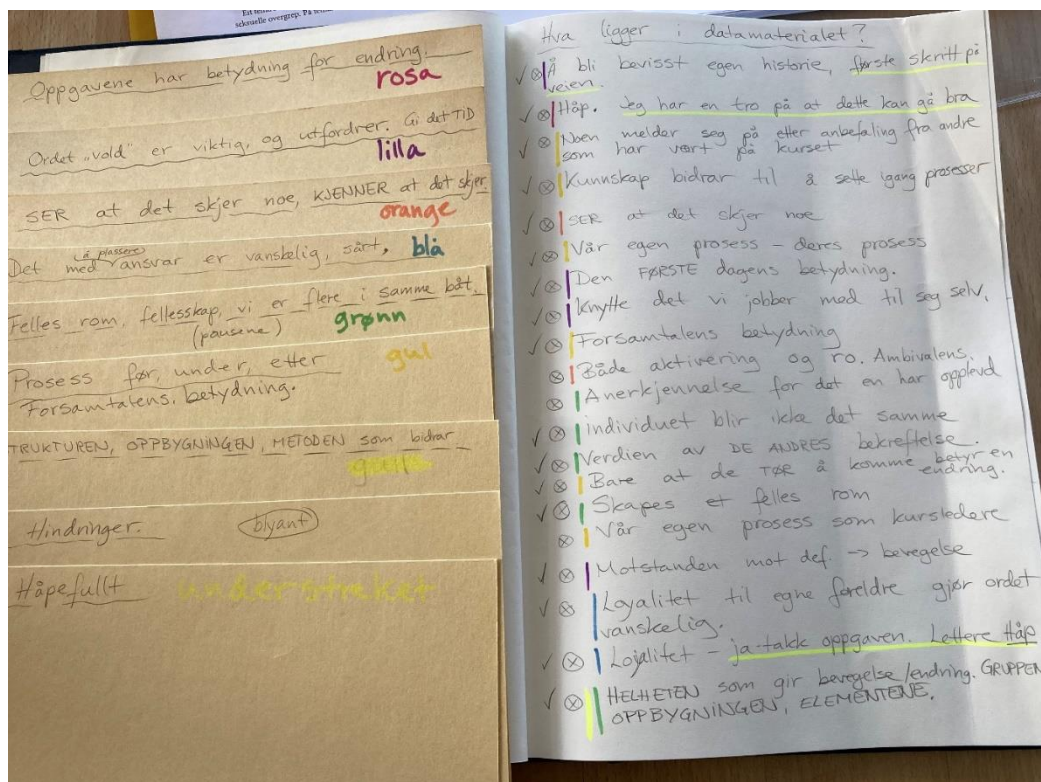 seksuelle overgrep. På
Oppgavene har betydning for endring.
rosa
Ordet "vold" er viktig, og utfordrer. Gi det TID
lilla
SER at det skjer noe, KJENNER at det skjer
orange
Det med å plassere ansvar er vanskelig, sårt,
blå
Felles rom, fellesskap, vi er flere i samme båt.
(pausene) grønn
Prosess før, under, etter
gul
Forsamtalens, betydning.
TRUKTUREN, OPPBYGNINGEN, METODEN som bidrar
Hindringer. blyant
Håpefullt understreket
Hva ligger i datamaterialet?
✓ ⊗ Å bli bevisst egen historie, første skritt på
veien.
✓ ⊗ Håp. Jeg har en tro på at dette kan gå bra
✓ ⊗ Noen melder seg på etter anbefaling fra andre
som har vært på kurset
✓ ⊗ Kunnskap bidrar til å sette igang prosesser
✓ ⊗ SER at det skjer noe
✓ ⊗ Vår egen prosess - deres prosess
✓ ⊗ Den FØRSTE dagens betydning.
✓ ⊗ Knytte det vi jobber med til seg selv,
✓ ⊗ Forsamtalens betydning
⊗ Både aktivering og ro. Ambivalens.
⊗ Anerkjennelse for det en har opplevd
✓ ⊗ individuet blir ikke det samme
✓ ⊗ Verdien av DE ANDRES bekreftelse.
✓ ⊗ Bare at de TØR å komme betyr en
endring.
✓ ⊗ Skapes et felles rom
⊗ Vår egen prosess som kursledere
✓ ⊗ Motstanden mot def. → bevegelse
✓ ⊗ Loyalitet til egne foreldre gjør ordet
vanskelig.
✓ ⊗ Lojalitet - ja-takk oppgaven. Lettere Håp
✓ ⊗ HELHETEN som gir bevegelse/endring. GRUPPEN
OPPBYGNINGEN, ELEMENTENE.